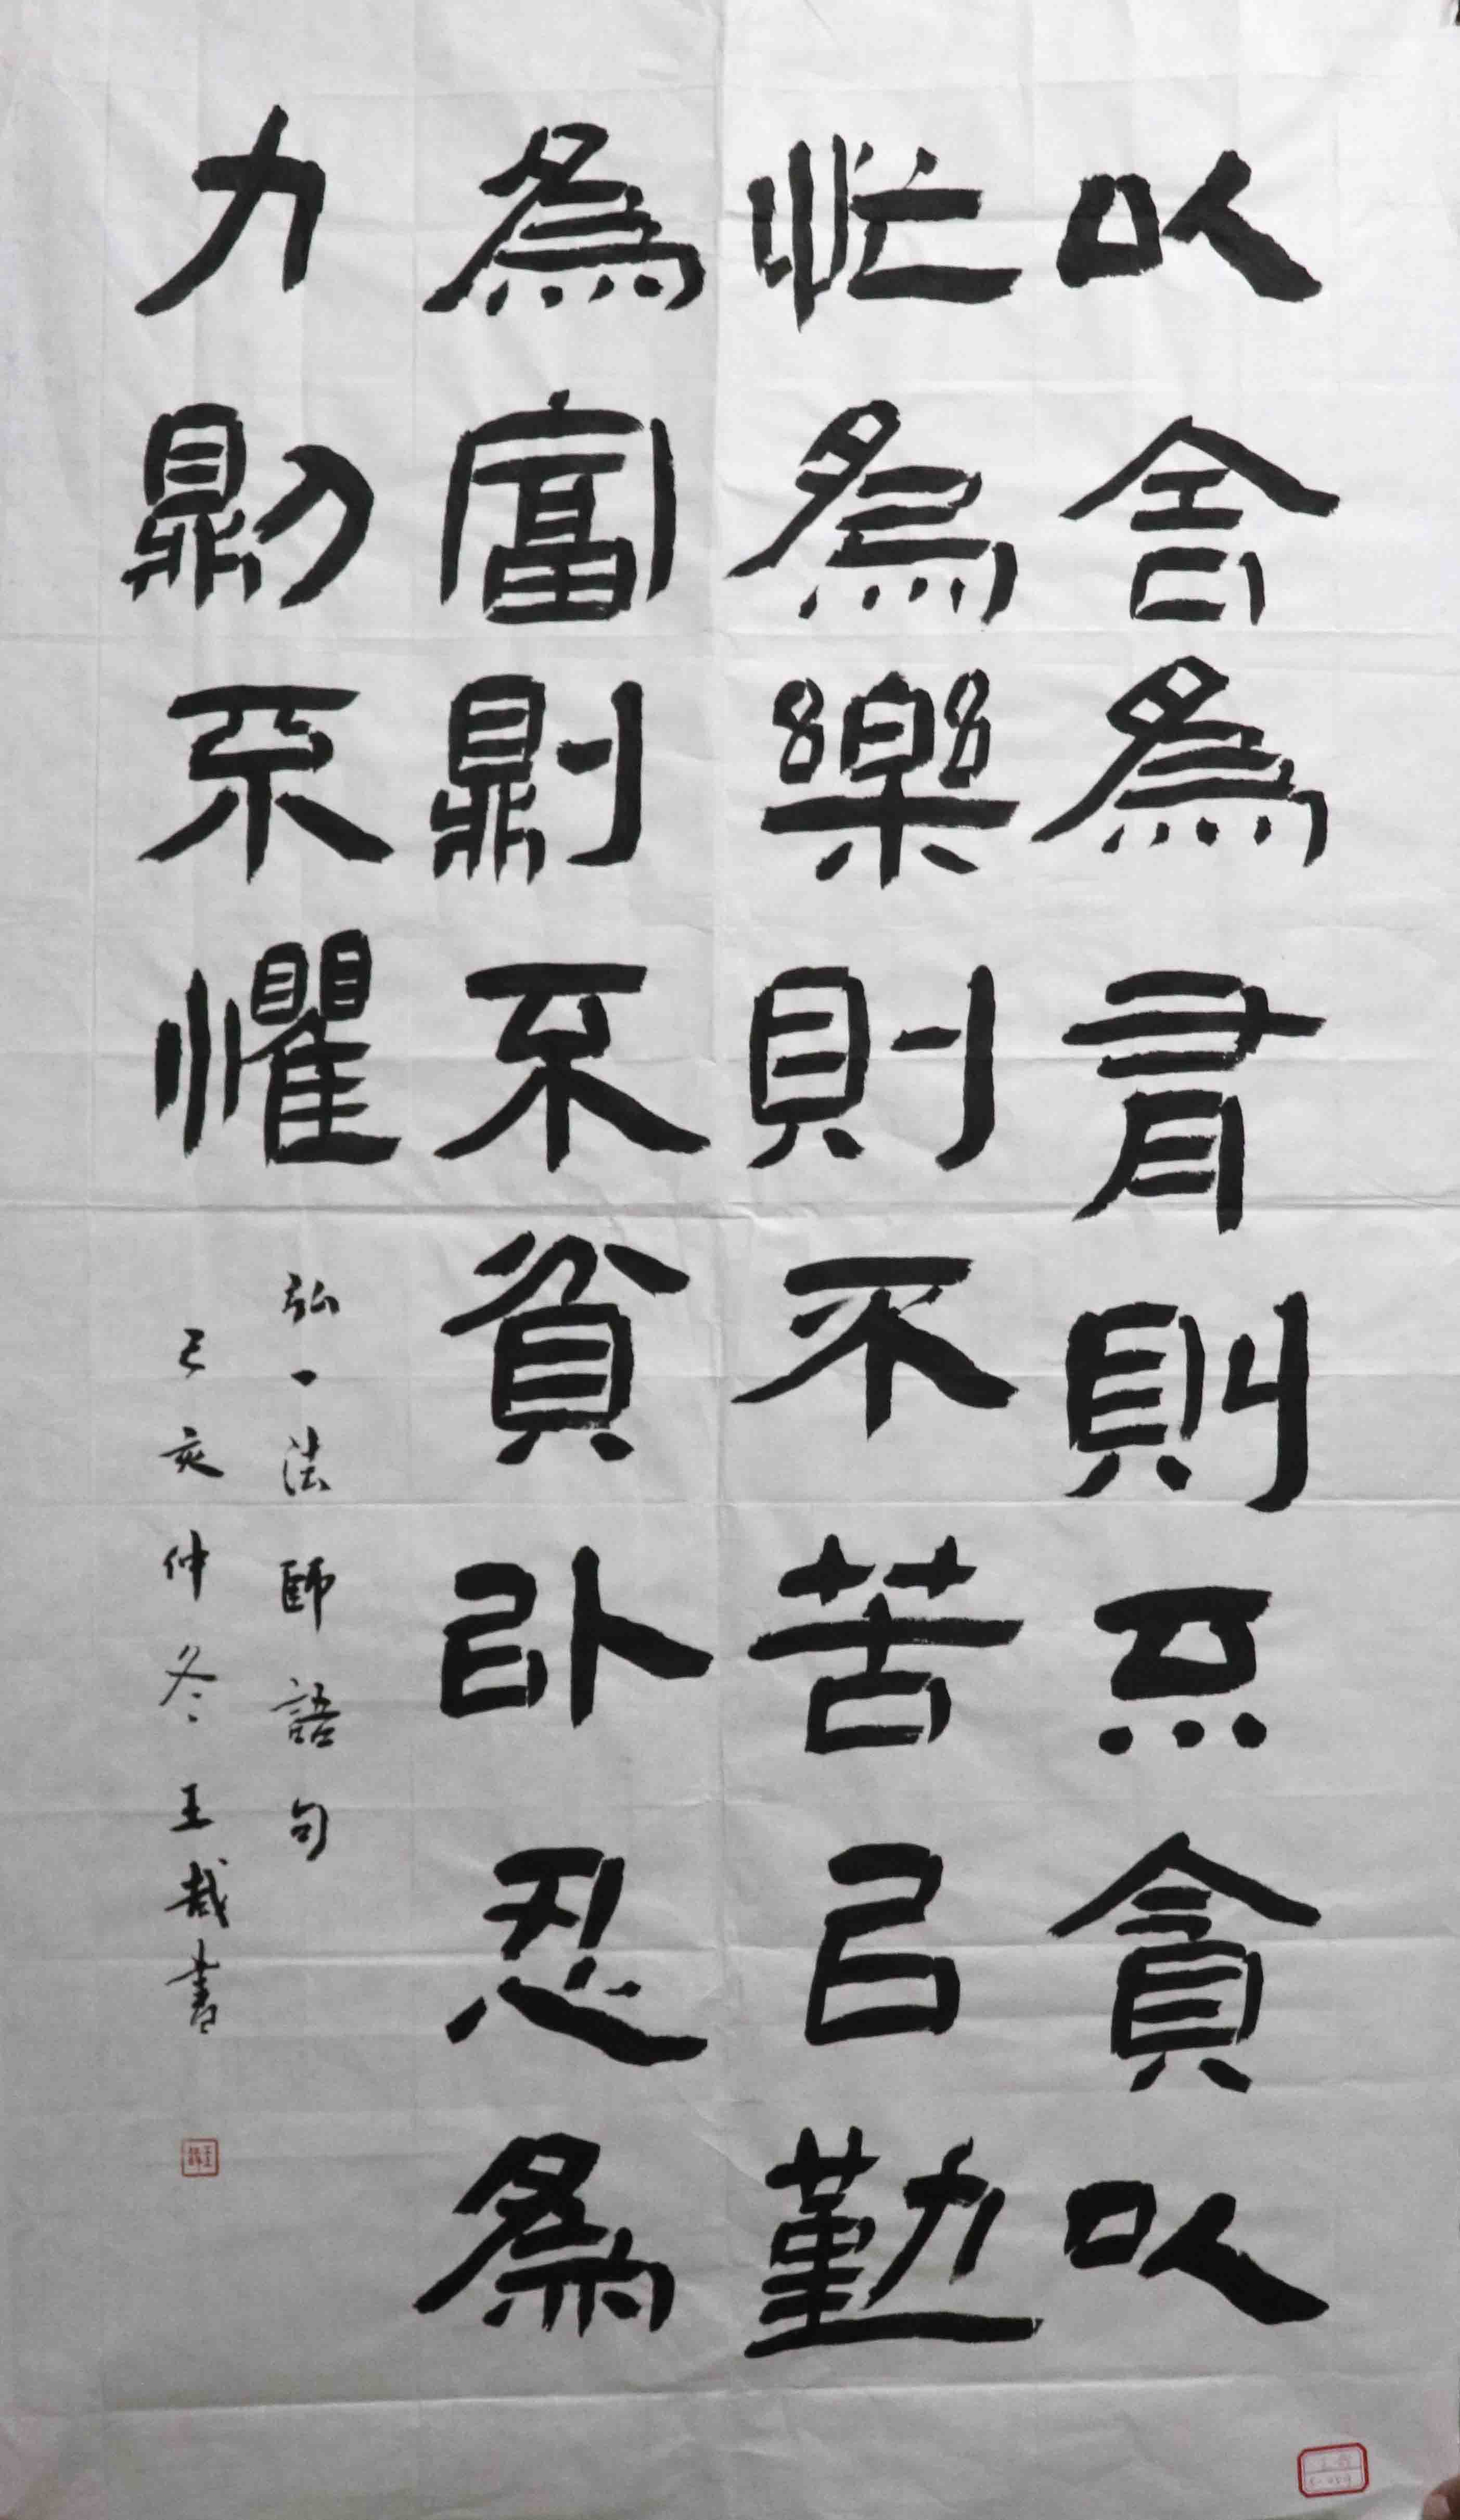 以舍為有則不貪以
忙為樂則不苦㠯勤
為富則不貧以忍為
力則不懼
弘一法師語句
己亥仲冬王哉書